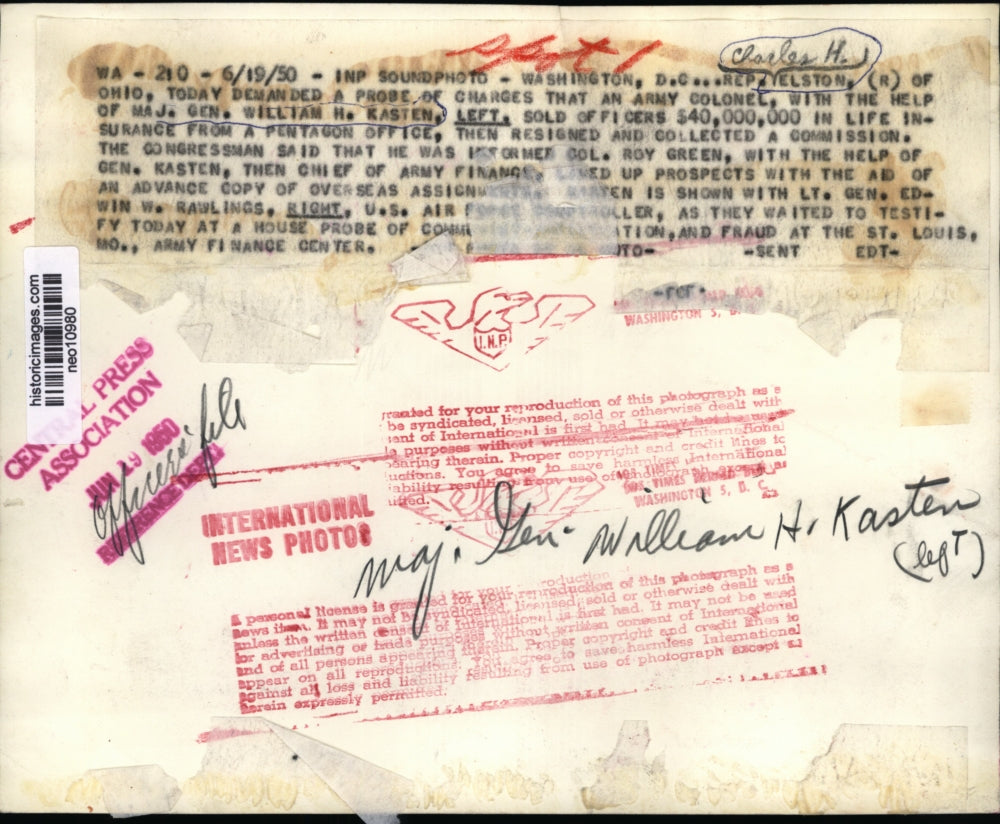 Sept 1
Charles H.
WA - 210 - 6/19/50 - INP SOUNDPHOTO - WASHINGTON, D.C...REP. YELSTON, (R) OF
OHIO, TODAY DEMANDED A PROBE OF CHARGES THAT AN ARMY COLONEL, WITH THE HELP
OF MAJ. GEN. WILLIAM H. KASTEN, LEFT, SOLD OFFICERS $40,000,000 IN LIFE IN-
SURANCE FROM A PENTAGON OFFICE, THEN RESIGNED AND COLLECTED A COMMISSION.
THE CONGRESSMAN SAID THAT HE WAS INFORMED COL. ROY GREEN, WITH THE HELP OF
GEN. KASTEN, THEN CHIEF OF ARMY FINANCE, UP PROSPECTS WITH THE AID OF
AN ADVANCE COPY OF OVERSEAS IS SHOWN WITH LT. GEN. ED-
WIN W. RAWLINGS, RIGHT, U.S. AIR AS THEY WAITED TO TESTI-
FY TODAY AT A HOUSE PROBE OF AND FRAUD AT THE ST. LOUIS,
MO., ARMY FINANCE CENTER. -SENT EDT-
historicimages.com
neo10980
U.N.P.
WASHINGTON 5, D.
CENTRAL PRESS
ASSOCIATION
JUN 19 1950
Officers' file
for your reproduction of this photograph as a
be syndicated, licensed, sold or otherwise dealt with
of International is first had. It may not be used
purposes without written consent of International
therein. Proper copyright and credit lines to
You agree to save harmless International
WASHINGTON 5, D. C.
INTERNATIONAL
NEWS PHOTOS
Maj. Gen. William H. Kasten
(left)
A personal license is granted for your reproduction of this photograph as a
news item. It may not be syndicated, licensed, sold or otherwise dealt with
unless the written consent of International is first had. It may not be used
for advertising or trade purposes without written consent of International
and of all persons appearing therein. Proper copyright and credit lines to
appear on all reproductions. You agree to save harmless International
against all loss and liability resulting from use of photograph except as
herein expressly permitted.